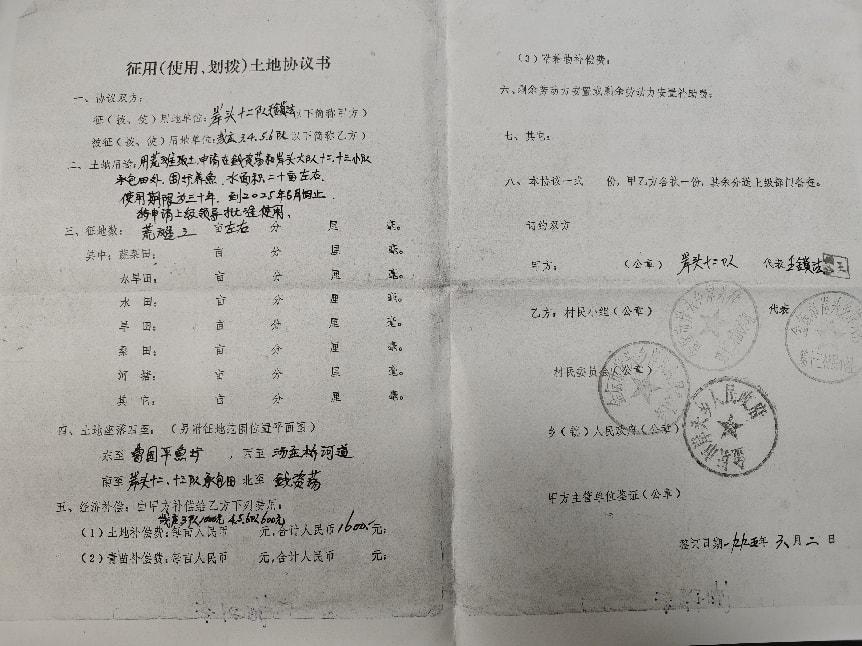 征用(使用、划拨)土地协议书
一、协议双方:
征(拨、使)用地单位:岸头十二队 以下简称甲方)
被征(拨、使)用地单位: 3.4.5.6队 以下简称乙方)
二、土地用途:用荒滩 土,申请在钱资荡和岸头大队十二、十三小队
承包田外,围圩养鱼,水面积二十亩左右.
使用期限为三十年,到2025年6月日止.
特申请上级领导批准使用.
三、征地数:荒滩三 亩左右 分 厘 毫。
其中:蔬菜田: 亩 分 厘 毫。
水旱田: 亩 分 厘 毫。
水 田: 亩 分 厘 毫。
旱 田: 亩 分 厘 毫。
桑 田: 亩 分 厘 毫。
河 塘: 亩 分 厘 毫。
其 它: 亩 分 厘 毫。
四、土地座落四至:(另附征地范围位置平面图)
东至 曹国平鱼圩,西至 汤金桥河道
南至 岸头十二、 队承包田 北至 钱资荡
五、经济补偿:由甲方补偿给乙方下列费用:
3队1000元 4.5.6队600元
(1)土地补偿费:每亩人民币 元,合计人民币1600.-元;
(2)青苗补偿费:每亩人民币 元,合计人民币 元;
(3)附着物补偿费:
六、剩余劳动力安置或剩余劳动力安置补助费:
七、其它:
八、本协议一式 份,甲乙方各执一份,其余分送上级部门备查。
订约双方
甲方: (公章) 岸头十二队 代表 王锁法
乙方:村民小组(公章) 代表
村民委员会(公章)
乡(镇)人民政府(公章)
岸头乡人民政府
甲方主管单位鉴证(公章)
签订日期一九九五年 六月二 日